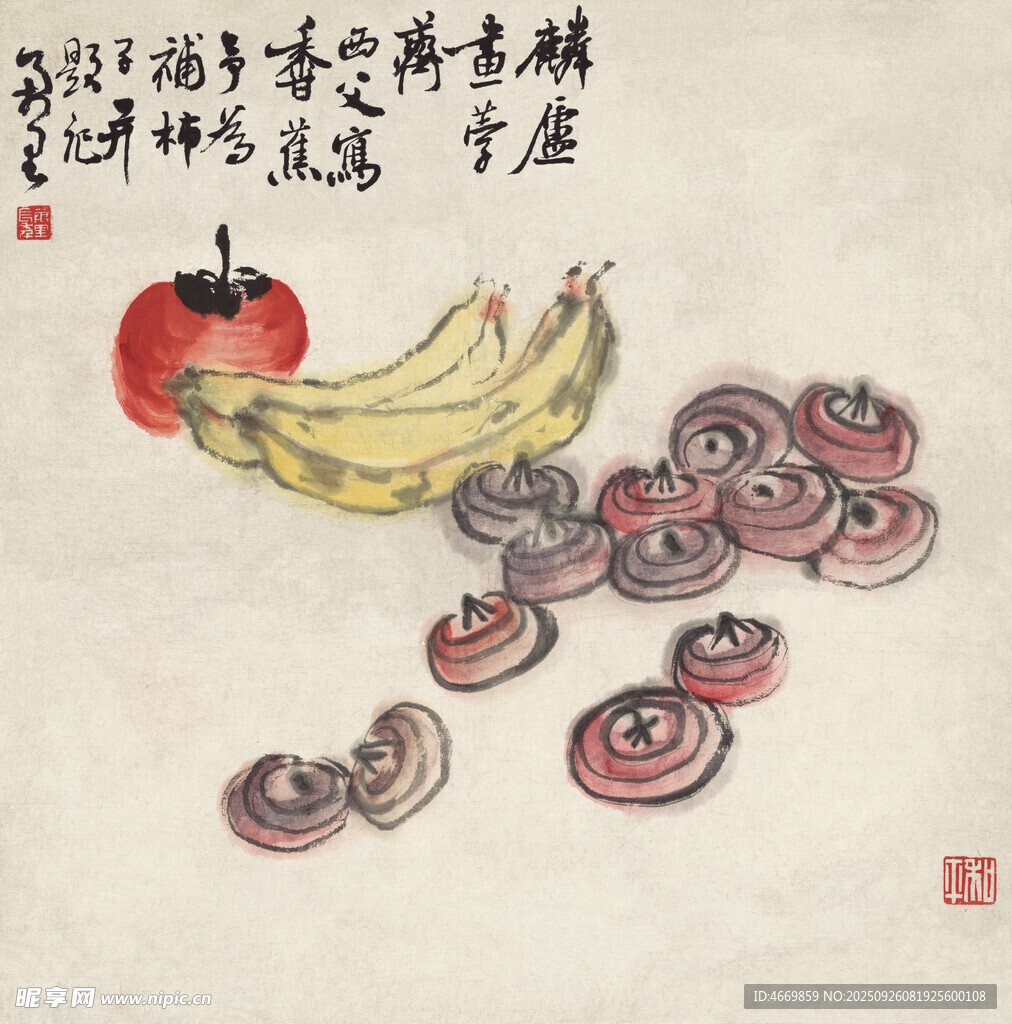 麟廬
畫荸
薺
西父寫
香蕉
予為
補柿
子并
題記
和平
昵享网 www.nipic.cn
ID:4669859 NO:20250926081925600108